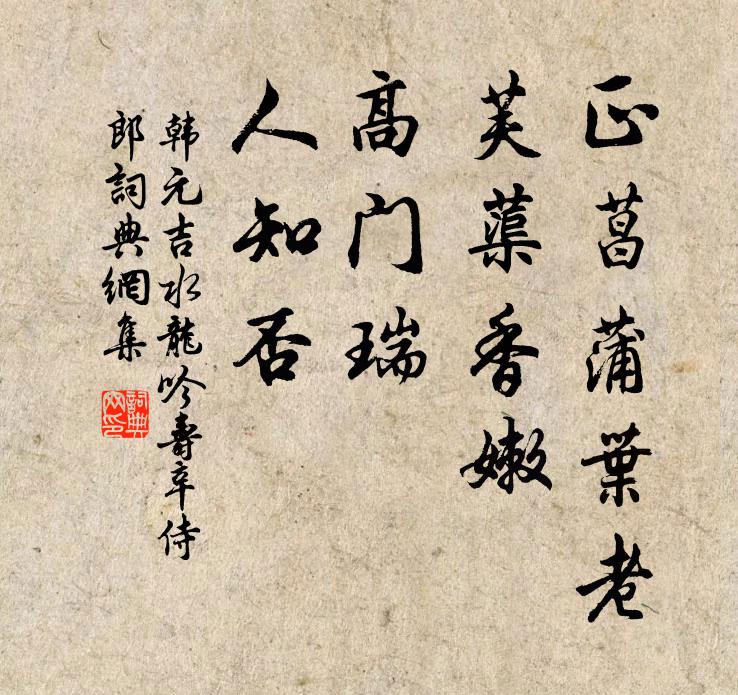 正菖蒲葉老
芙蕖香嫩
高门瑞
人知否
韩元吉水龍吟壽辛侍
郎詞典網集
詞典
网印